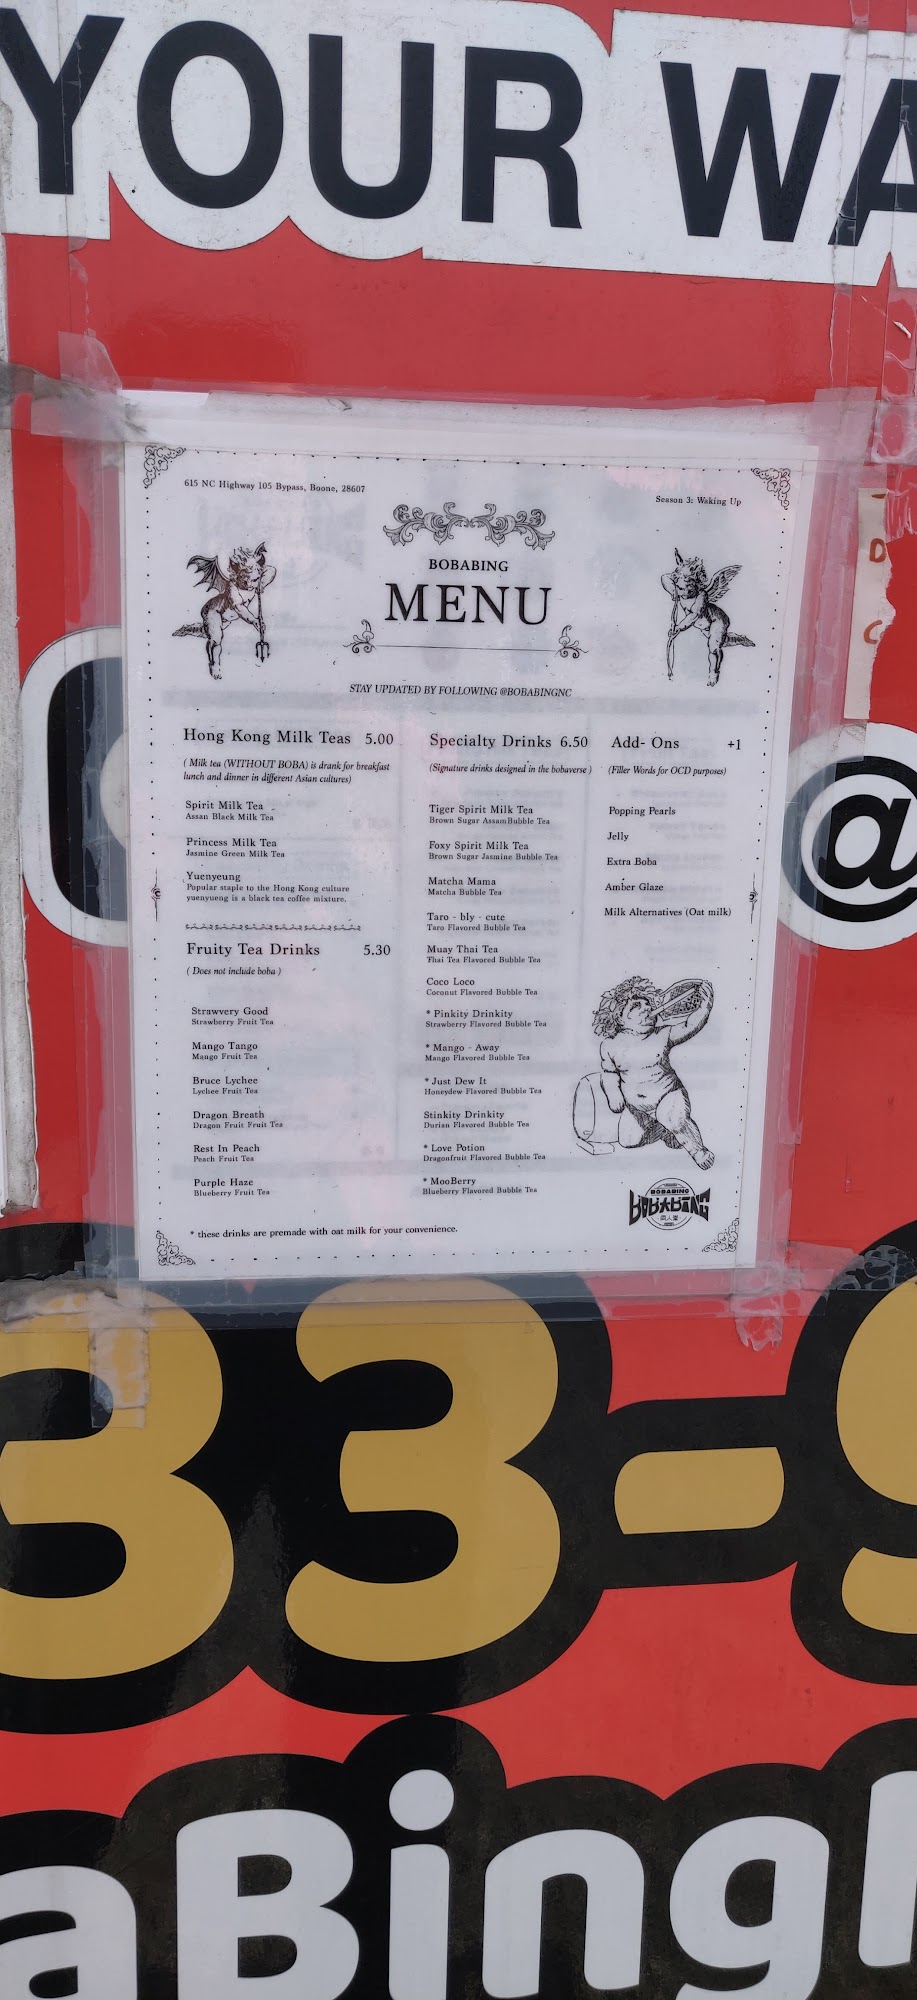 YOUR WA
615 NC Highway 105 Bypass, Boone, 28607
Season 3: Waking Up
BOBABING
MENU
STAY UPDATED BY FOLLOWING @BOBABINGNC
Hong Kong Milk Teas 5.00
( Milk tea (WITHOUT BOBA) is drank for breakfast
lunch and dinner in different Asian cultures)
Spirit Milk Tea
Assan Black Milk Tea
Princess Milk Tea
Jasmine Green Milk Tea
Yuenyeung
Popular staple to the Hong Kong culture
yuenyueng is a black tea coffee mixture.
Fruity Tea Drinks 5.30
( Does not include boba )
Strawvery Good
Strawberry Fruit Tea
Mango Tango
Mango Fruit Tea
Bruce Lychee
Lychee Fruit Tea
Dragon Breath
Dragon Fruit Fruit Tea
Rest In Peach
Peach Fruit Tea
Purple Haze
Blueberry Fruit Tea
Specialty Drinks 6.50
(Signature drinks designed in the bobaverse )
Tiger Spirit Milk Tea
Brown Sugar AssamBubble Tea
Foxy Spirit Milk Tea
Brown Sugar Jasmine Bubble Tea
Matcha Mama
Matcha Bubble Tea
Taro - bly - cute
Taro Flavored Bubble Tea
Muay Thai Tea
Thai Tea Flavored Bubble Tea
Coco Loco
Coconut Flavored Bubble Tea
* Pinkity Drinkity
Strawberry Flavored Bubble Tea
* Mango - Away
Mango Flavored Bubble Tea
* Just Dew It
Honeydew Flavored Bubble Tea
Stinkity Drinkity
Durian Flavored Bubble Tea
* Love Potion
Dragonfruit Flavored Bubble Tea
* MooBerry
Blueberry Flavored Bubble Tea
Add- Ons +1
(Filler Words for OCD purposes)
Popping Pearls
Jelly
Extra Boba
Amber Glaze
Milk Alternatives (Oat milk)
BOBABING
BOBABING
* these drinks are premade with oat milk for your convenience.
D
C
@
33-9
aBing